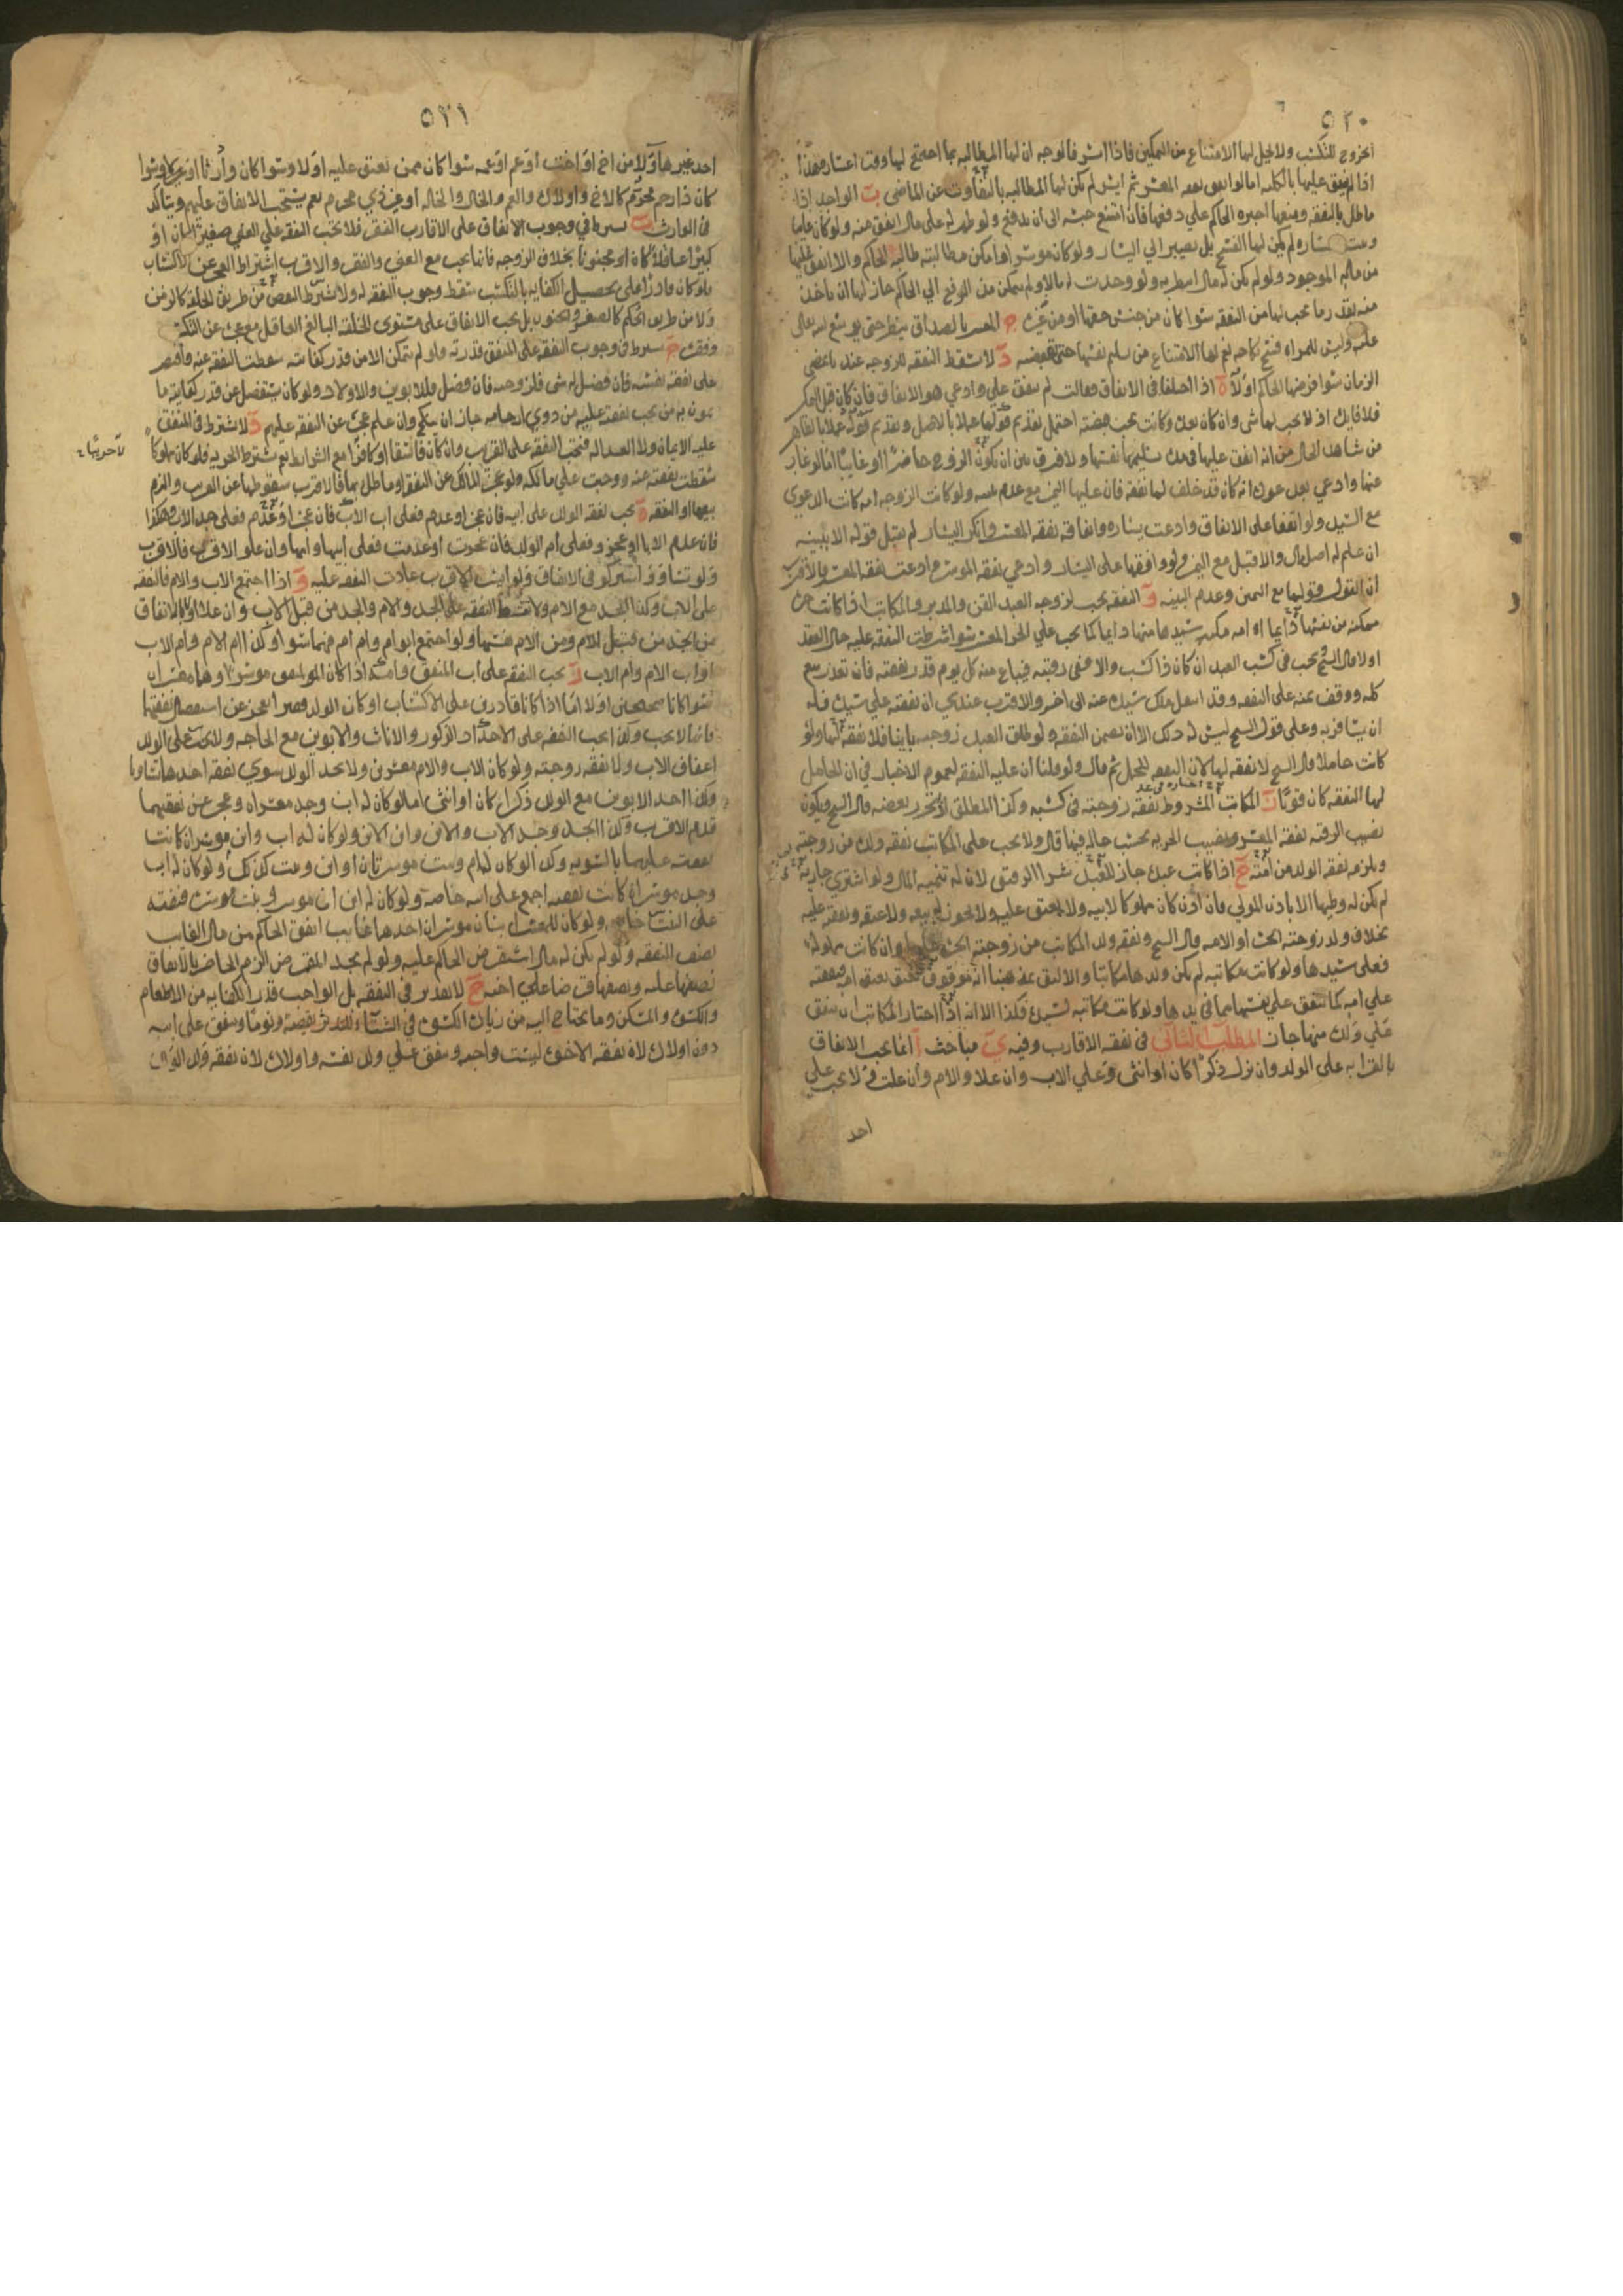 ٥٢٠
الخروج للتكسب ولا يحل لها الامتناع من التمكين فاذا ايسر فالوجه ان لها المطالبة بما اجتمع لها وقت اعساره هذا
اذا لم ينفق عليها بالكلية اما لو انفق نفقة المعسر ثم ايسر لم يكن لها المطالبة بالتفاوت عن الماضي ب الواجد اذا
ماطل بالنفقة ومنعها اجبره الحاكم على دفعها فان امتنع حبسه الى ان يدفع ولو ظهر له على مال انفق منه ولو كان غايبا
وثبت اعساره لم يكن لها الفسخ بل تصبر الى اليسار ولو كان موسرا وامكن مطالبته طالبه الحاكم والا انفق عليها
من ماله الموجود ولو لم يكن له مال ولو وجدت له مالا ولم يتمكن من الرفع الى الحاكم جاز لها ان تاخذ
منه بقدر ما يجب لها من النفقة سوا كان من جنس حقها او من غيره ج المعسر بالصداق ينظر حتى يوسع الله تعالى
عليه وليس للمراة فسخ نكاحه نعم لها الامتناع من تسليم نفسها حتى تقبضه د لا تسقط النفقة للزوجة عندنا بمضي
الزمان سوا فرضها الحاكم اولا ه اذا اختلفا في الانفاق فقالت لم ينفق علي وادعى هو الانفاق فان كان قبل التمكين
فلا فايدة اذ لا يجب لها شي وان كان بعده وكانت تحت قبضته احتمل تقديم قولها عملا بالاصل وتقديم قوله عملا بالظاهر
من شاهد الحال من انه انفق عليها في مدة تسليمها نفسها ولا فرق بين ان يكون الزوج حاضرا او غايبا اما لو غاب
عنها وادعى بعد عوده انه كان قد خلف لها نفقة فان عليها اليمين مع عدم بينته ولو كانت الزوجة امة كانت الدعوى
مع السيد ولو اتفقا على الانفاق وادعت يساره وانفاقه نفقة المعسر وانكر اليسار لم يقبل قوله الا ببينة
ان علم له اصل مال والا قبل مع اليمين ولو وافقها على اليسار وادعى نفقة الموسر وادعت نفقة المعسر فالاقرب
ان القول قولها مع اليمين وعدم البينة و النفقة تجب لزوجة العبد القن والمدبر والمكاتب اذا كانت حرة
ممكنة من نفسها دايما او امة مكنه سيدها منها دايما كما يجب على الحر المعسر سوا شرطت النفقة عليه حال العقد
اولا قال الشيخ تجب في كسب العبد ان كان ذا كسب والا ففي رقبته فيباع منه كل يوم قدر نفقته فان تعذر بيع
كله ووقف ثمنه على النفقة وقد انتقل ملك سيده عنه الى اخر والاقرب عندي ان نفقته على سيده فله
ان يسافر به وعلى قول الشيخ ليس له ذلك الا ان يضمن النفقة ولو طلق العبد زوجته باينا فلا نفقة لها ولو
كانت حاملا قال الشيخ لا نفقة لها لان النفقة للحمل ثم قال ولو قلنا ان عليه النفقة لعموم الاخبار في ان الحامل
لها النفقة كان قويا ز المكاتب المشروط نفقة زوجته في كسبه وكذا المطلق لو تحرر بعضه قال الشيخ ويكون
نصيب الرقية نفقة المعسر ونصيب الحرية بحسب حاله فيما قال ولا يجب على المكاتب نفقة ولده من زوجته
ويلزمه نفقة الولد من امته ح اذا كاتب عبده جاز للعبد شرا الرقيق لان له تنمية المال ولو اشترى جارية
لم يكن له وطيها الا باذن المولى فان اذن كان مملوكا لابيه ولا ينعتق عليه ولا يجوز له بيعه ولا عتقه ونفقته عليه
بخلاف ولد زوجته الحرة او الامة قال الشيخ ونفقة ولد المكاتب من زوجته الحرة عليها وان كانت مملوكة
فعلى سيدها ولو كانت مكاتبة لم يكن ولدها مكاتبا والاليق بمذهبنا انه موقوف يعتق بعتق امه فنفقته
على امه كما تنفق على نفسها مما في يدها ولو كانت مكاتبة لسيده فكذا الا انه اذا اختار المكاتب ان ينفق
على ولده منها جاز المطلب الثاني في نفقة الاقارب وفيه ي مباحث ا انما يجب الانفاق
بالقرابة على الولد وان نزل ذكرا كان او انثى وعلى الاب وان علا والام وان علت ولا يجب على
احد
٥٢١
احد غيرهما ولا من اخ او اخت او عم او عمة سوا كان ممن ينعتق عليه اولا وسوا كان وارثا او غيره وسوا
كان ذا رحم محرم كالاخ واولاده والعم والخال والخالة او غير ذي محرم نعم يستحب الانفاق عليهم ويتاكد
في الوارث ب يشترط في وجوب الانفاق على الاقارب الفقر فلا تجب النفقة على الغني صغيرا كان او
كبيرا عاقلا كان او مجنونا بخلاف الزوجة فانها تجب مع الغنى والفقر والاقرب اشتراط العجز عن الاكتساب
فلو كان قادرا على تحصيل الكفاية بالتكسب سقط وجوب النفقة له ولا يشترط النقص من طريق الخلقة كالزمن
ولا من طريق الحكم كالصغير والجنون بل يجب الانفاق على مستوى الخلقة البالغ العاقل مع عجزه عن التكسب
وفقره ج يشترط في وجوب النفقة على المنفق قدرته فلو لم يتمكن الا من قدر كفايته سقطت النفقة عنه واقتصر
على نفقة نفسه فان فضل له شي فلزوجته فان فضل فللابوين والاولاد ولو كان يتفضل عن قدر كفايته ما
يمون به من يجب نفقته عليه من ذوي ارحامه جاز ان ينكح وان علم عجزه عن النفقة عليهم د لا يشترط في المنفق
عليه الايمان ولا العدالة فتجب النفقة على القريب وان كان فاسقا او كافرا مع الشرايط نعم يشترط الحرية فلو كان مملوكا
لا حربيا
سقطت نفقته عنه ووجبت على مالكه ولو عجز المالك عن النفقة او ماطل بها فالاقرب سقوطها عن القريب والزم
بيعه او النفقة ه تجب نفقة الولد على ابيه فان عجز او عدم فعلى اب الاب فان عجز او عدم فعلى جد الاب وهكذا
فان عدم الابا او عجزوا فعلى ام الولد فان عجزت او عدمت فعلى ابيها وامها وان علوا الاقرب فالاقرب
ولو تساووا اشتركوا في الانفاق ولو ايسر الاقرب عادت النفقة عليه و اذا اجتمع الاب والام فالنفقة
على الاب وكذا الجد مع الام ولا تبسط النفقة على الجد والام والجد من قبل الاب وان علا اولى بالانفاق
من الجد من قبل الام ومن الام نفسها ولو اجتمع ابو ام وام ام فهما سوا وكذا ام الام وام الاب
او اب الام وام الاب ز تجب النفقة على اب المنفق وامه اذا كان الولد المنفق موسرا وهما معسران
سوا كانا صحيحين اولا اما اذا كانا قادرين على الاكتساب او كان الولد معسرا يعجز عن استفضال نفقتهما
فانها لا تجب وكذا تجب النفقة على الاجداد الذكور والاناث والابوين مع الحاجة ولا يجب على الولد
اعفاف الاب ولا نفقة زوجته ولو كان الاب والام معسرين ولا يجد الولد سوى نفقة احدهما تساويا
وكذا احد الابوين مع الولد ذكرا كان او انثى اما لو كان له اب وجد معسران وعجز عن نفقتهما
قدم الاقرب وكذا الجد وجد الاب والابن وابن الابن ولو كان له اب وابن موسران كانت
نفقته عليهما بالسوية وكذا لو كان له ام وبنت موسرتان او ابن وبنت كذلك ولو كان له اب
وجد موسران كانت نفقته اجمع على ابيه خاصة ولو كان له ابن ابن موسر وبنت موسرة فنفقته
على البنت خاصة ولو كان للمعسر ابنان موسران احدهما غايب انفق الحاكم من مال الغايب
نصف النفقة ولو لم يكن له مال استقرض الحاكم عليه ولو لم يجد المقرض الزم الحاضر بالانفاق
نصفها عليه ونصفها قرضا على اخيه ح لا تقدير في النفقة بل الواجب قدر الكفاية من الاطعام
والكسوة والمسكن وما يحتاج اليه من زيادة الكسوة في الشتاء للتدثر يقظة ونوما وينفق على ابيه
دون اولاده لان نفقة الاخوة ليست واجبة وينفق على ولد نفسه واولاده لان نفقة ولد الولد